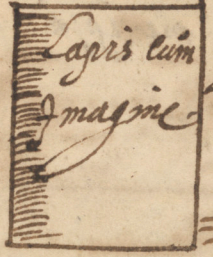 Lapis cum
Imagine